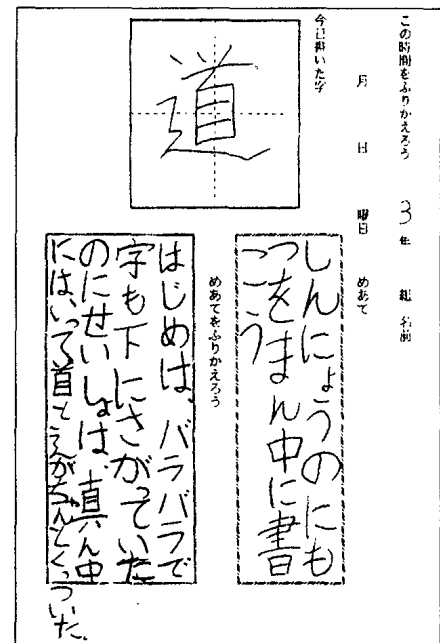 この時間をふりかえろう 3年 組 名前
月 日 曜日 めあて
しんにょうのにも
つをまん中に書
こう
今日書いた字
道
めあてをふりかえろう
はじめは、バラバラで
字も下にさがっていた
のにせいしょは、真ん中
にはいって首としんにょうがちゃんとくっついた。